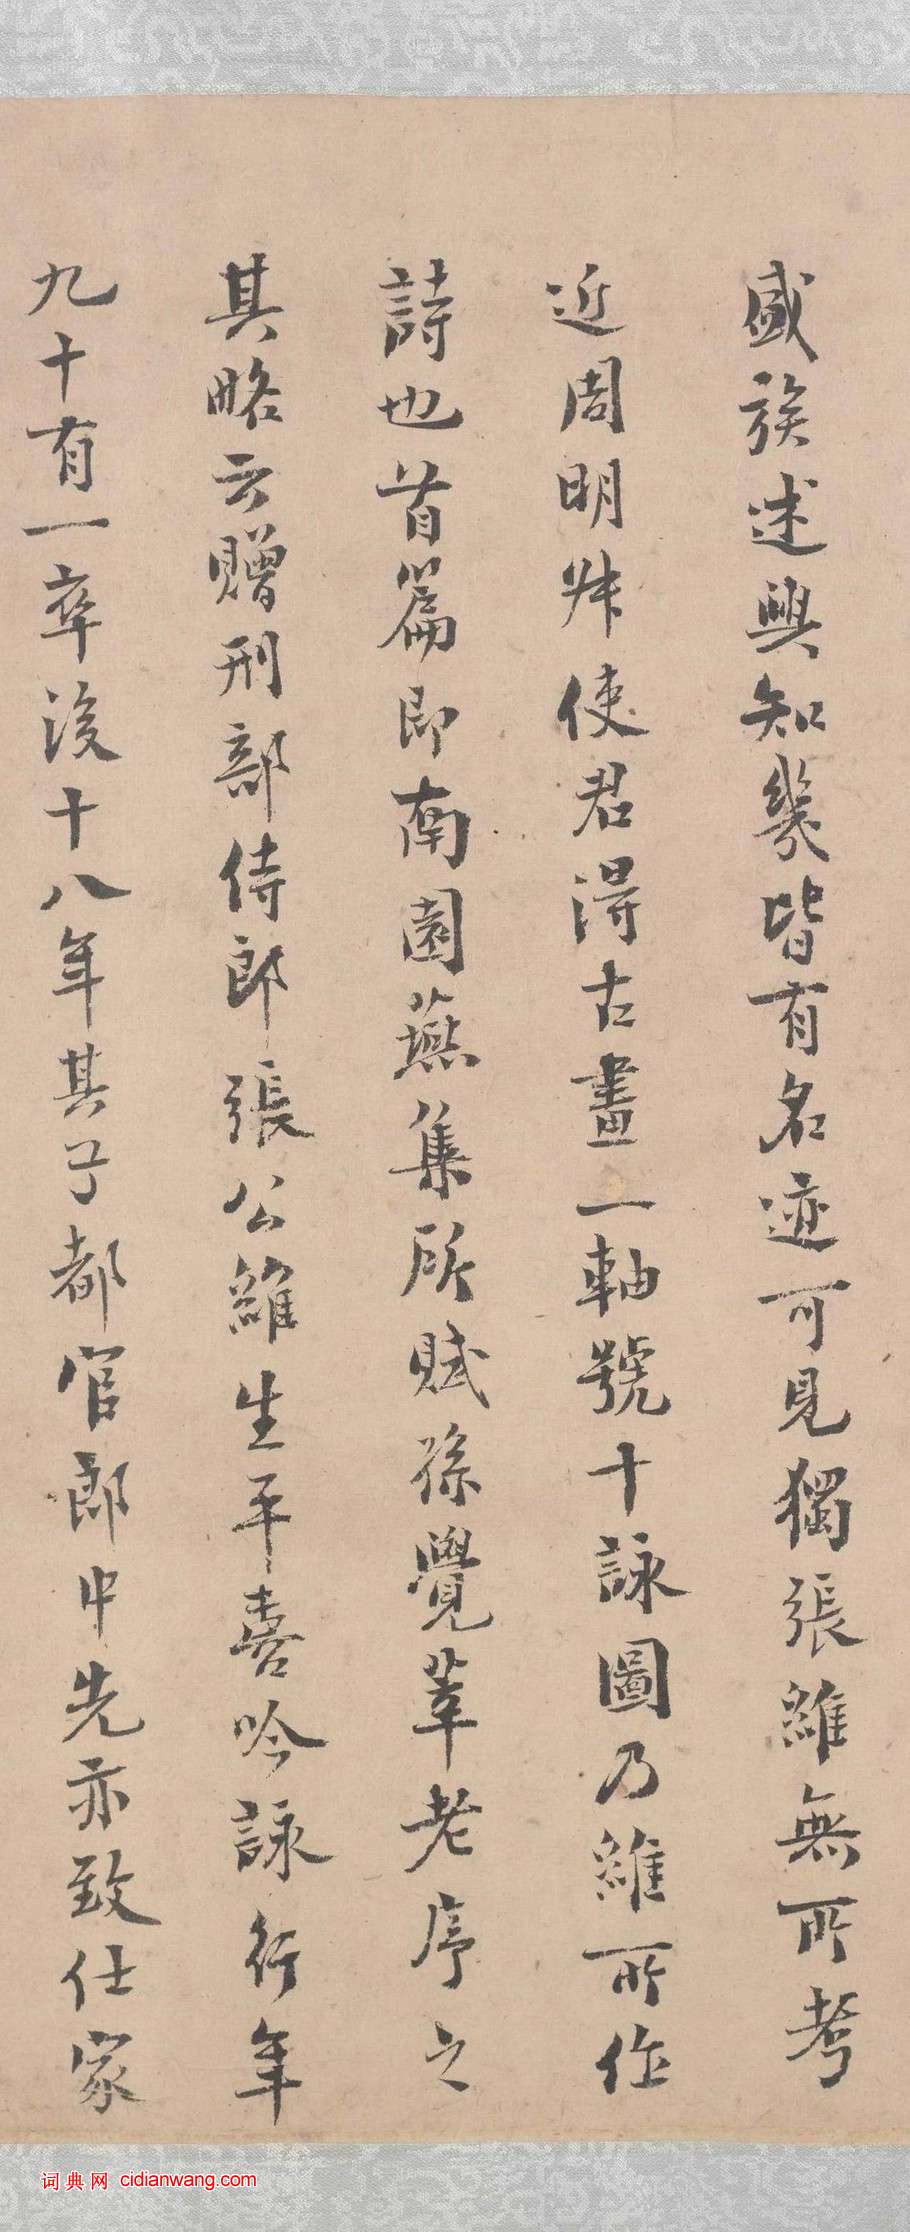 盛族述興知幾皆有名迹可見獨張維無所考
近周明叔使君得古畫一軸號十詠圖乃維所作
詩也首篇即南園燕集所賦孫覺莘老序之
其略云贈刑部侍郎張公維生平喜吟詠行年
九十有一卒後十八年其子都官郎中先亦致仕家
词典网 cidianwang.com